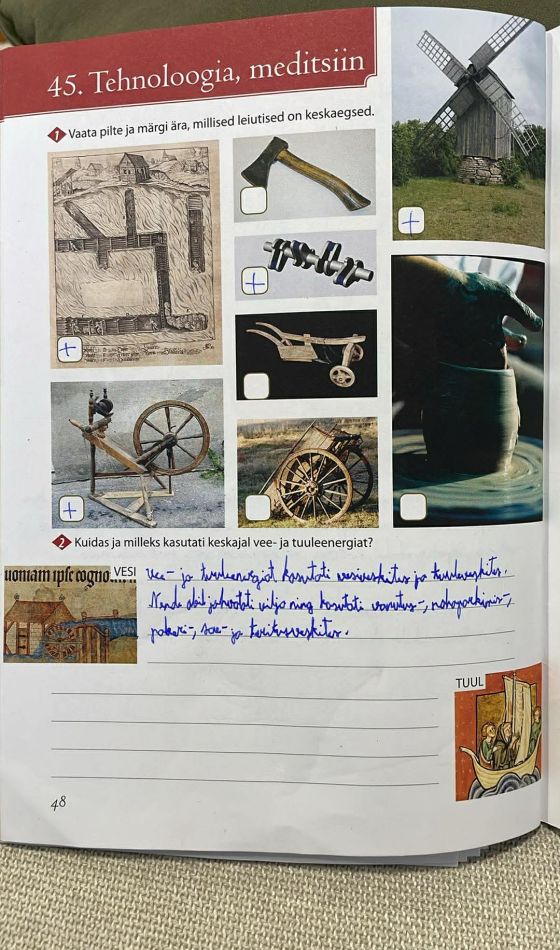 45. Tehnoloogia, meditsiin
1 Vaata pilte ja märgi ära, millised leiutised on keskaegsed.
+
+
+
+
2 Kuidas ja milleks kasutati keskajal vee- ja tuuleenergiat?
uoniam ipse cogno
VESI
vee- ja tuuleenergiat kasutati vesiveskites ja tuuleveskites.
Nende abil jahvatati vilja ning kasutati vanutus-, nahaparkimis-,
paberi-, sae- ja
TUUL
48